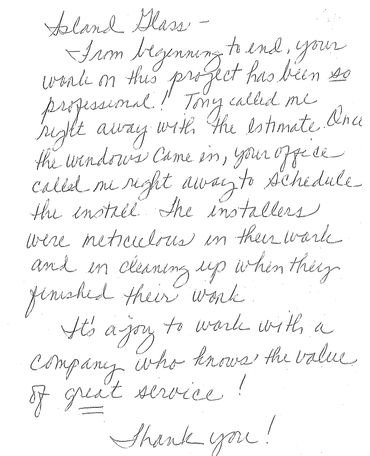 Island Glass -
From beginning to end, your
work on this project has been so
professional! Tony called me
right away with the estimate. Once
the windows came in, your office
called me right away to schedule
the install. The installers
were meticulous in their work
and in cleaning up when they
finished their work
It's a joy to work with a
company who knows the value
of great service!
Thank you!